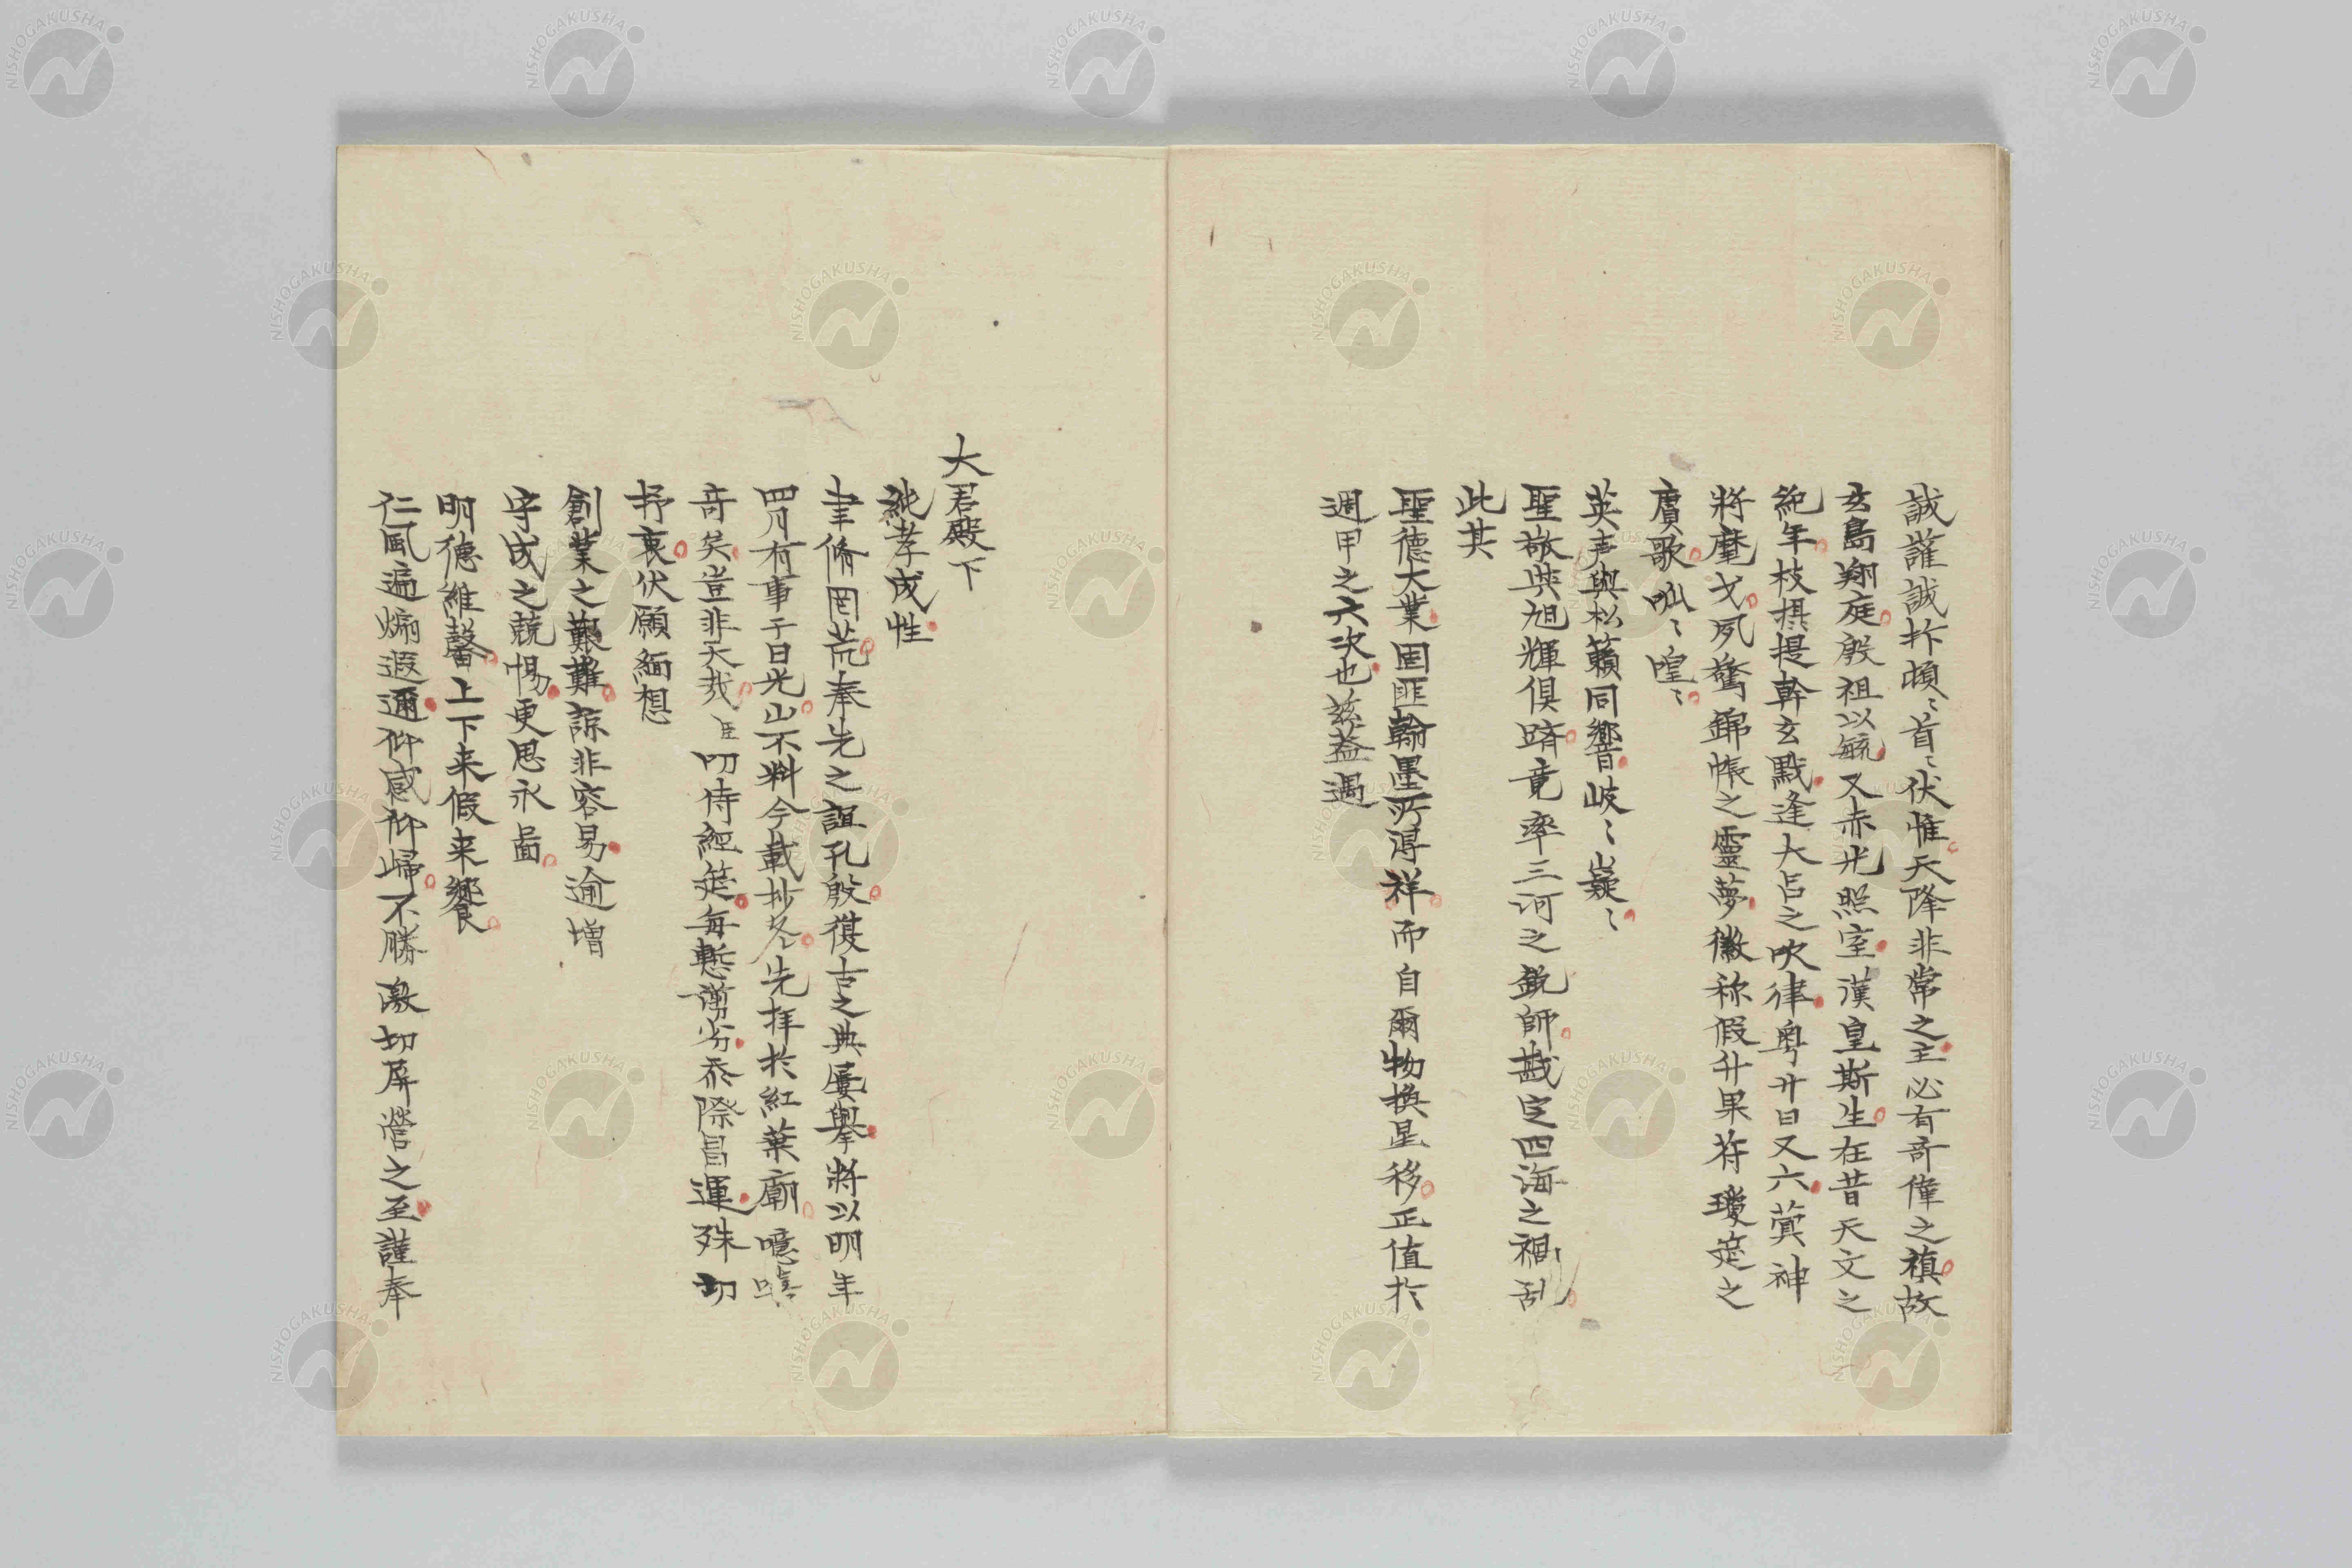 誠謹誠抃頓〻首〻伏惟天降非常之主必有奇偉之禎故
玄鳥翔庭殷祖以毓又赤光照室漢皇斯生在昔天文之
紀年枝摂提幹玄黓逢大呂之吹律粤廿日又六蓂神
將麾戈夙驚錦帳之靈夢徽称假升果符瓊筵之
賡歌呱〻喤〻
英声與松籟同響岐〻嶷〻
聖敬与旭輝俱躋竟率三河之鋭師戡定四海之禍乱
此其
聖德大業固匪翰墨所得祥而自爾物換星移正值於
週甲之六次也茲蓋遇
大君殿下
純孝成性
聿脩罔荒奉先之誼孔殷復古之典屢舉將以明年
四月有事于日光山不料今載抄冬先拜於紅葉廟噫嘻
奇矣豈非天哉臣叨侍經筵每慙謭劣忝際昌運殊切
抒衷伏願緬想
創業之艱難諒非容易逾増
守成之兢惕更思永啚
明德維馨上下来假来饗
仁風遍煽遐邇仰感仰歸不勝激切屏營之至謹奉